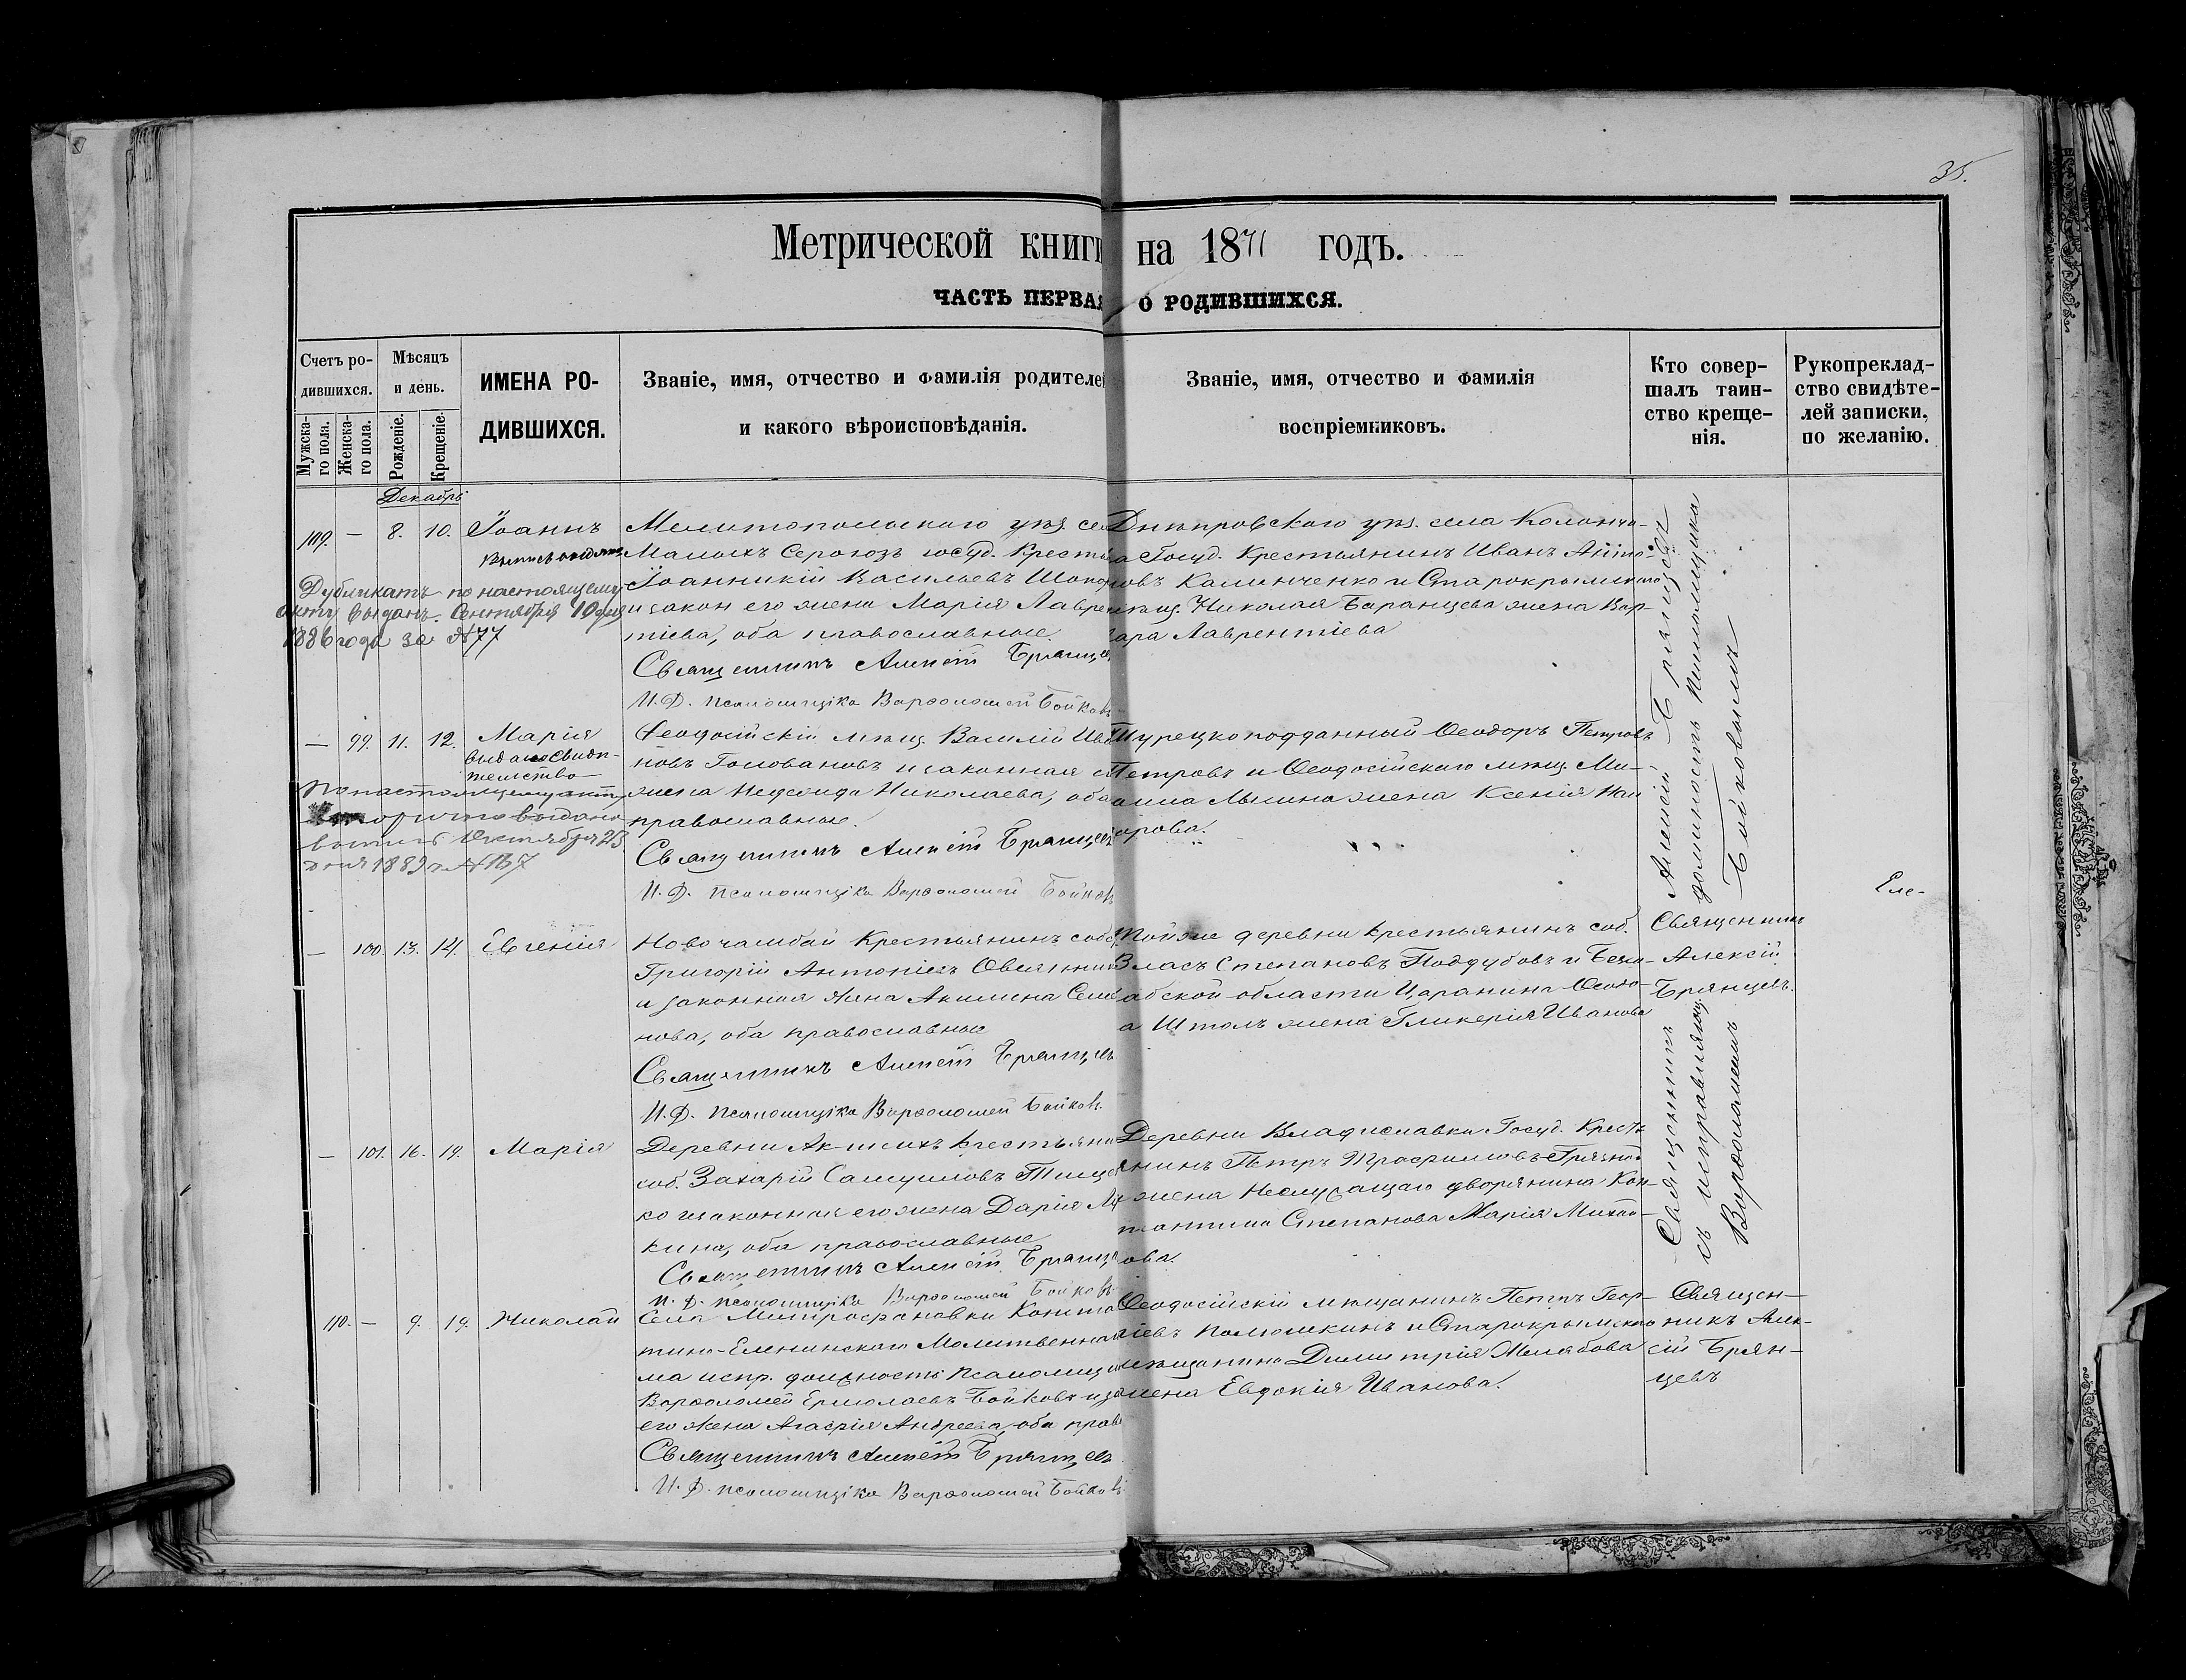 35.
Метрической книги на 1871 годъ.
ЧАСТЬ ПЕРВАЯ О РОДИВШИХСЯ.
Счетъ ро-
дившихся.
Мужска-
го пола.
Женска-
го пола.
Мѣсяцъ
и день.
Рожденіе.
Крещеніе.
ИМЕНА РО-
ДИВШИХСЯ.
Званіе, имя, отчество и фамилія родителей
и какого вѣроисповѣданія.
Званіе, имя, отчество и фамилія
воспріемниковъ.
Кто совер-
шалъ таин-
ство креще-
нія.
Рукопреклад-
ство свидѣте-
лей записки,
по желанію.
Декабрь
109. — 8. 10. Іоаннъ
Дубликатъ по настоящему
акту выданъ. Сентября 10 дня
1886 года за №77
Мелитопольскаго уѣз. се
Малыхъ Серогозъ госуд. Крест
Іоанникій Васильевъ
и закон его жена Марія Лаврен
тіева, оба православные
Священникъ Алексій Брянцевъ
И. Д. псаломщика Варѳоломей Бойковъ
Днѣпровскаго уѣз. села Колонча-
Госуд. Крестьянинъ Иванъ Анто-
новъ Калинченко и Старокрымскаго
мѣщ. Николая Баранцева жена Вар-
вара Лаврентіева
— 99. 11. 12. Марія
выдано свидѣ-
тельство
По настоящему акту
вторично выдана
выпись Октября 23
дня 1889 г. № 137
Ѳеодосійскій мѣщ. Василій Ива
новъ Головановъ и законная е
жена Неѳонида Николаева, оба
православные.
Священникъ Алексій Брянцевъ
И. Д. псаломщика Варѳоломей Бойковъ
Турецкоподданный Ѳеодоръ Петровъ
Петровъ и Ѳеодосійскаго мѣщ. Ми-
жена Ксенія
— 100. 13. 14. Евгенія
Новочамбай Крестьянинъ соб.
Григорій Антоніевъ
и законная жена Акилина Семе
нова, оба православные
Священникъ Алексій Брянцевъ
И. Д. псаломщика Варѳоломей Бойковъ.
Той же деревни крестьянинъ соб.
Власъ Степановъ Поддубовъ и Бесса-
рабской области Царанина Ѳеодо-
а Штоль жена Гликерія Иванова
Священникъ
Алексій
Брянцевъ.
— 101. 16. 19. Марія
Деревни крестьянин
соб. Захарій Самуиловъ Тищен
ко и законная его жена Дарія Лу
кина, оба православные
Священникъ Алексій Брянцевъ
И. Д. псаломщика Варѳоломей Бойковъ
Деревни Владиславки Госуд. Кресть
янинъ Петръ Трофимовъ
жена Неслужащаго дворянина Кон-
стантина Степанова Марія Михай-
лова.
110. — 9. 19. Николай
Села Митрофановки Конста
тино-Еленинскаго Молитвеннаго
ма испр. должность псаломщ
Варѳоломей Ермолаевъ Бойковъ и за
его жена Агафія Андреева, оба прав
Священникъ Алексій Брянцевъ
И. Д. псаломщика Варѳоломей Бойковъ
Ѳеодосійскій мѣщанинъ Петръ Геор-
гіевъ и Старокрымскаго
мѣщанина Димитрія
жена Евдокія Иванова.
Священ-
никъ Алек-
сій Брян-
цевъ
Священникъ Алексій Брянцевъ
съ исправляющ. должность Псаломщика
Варѳоломеемъ Бойковымъ
Еле-